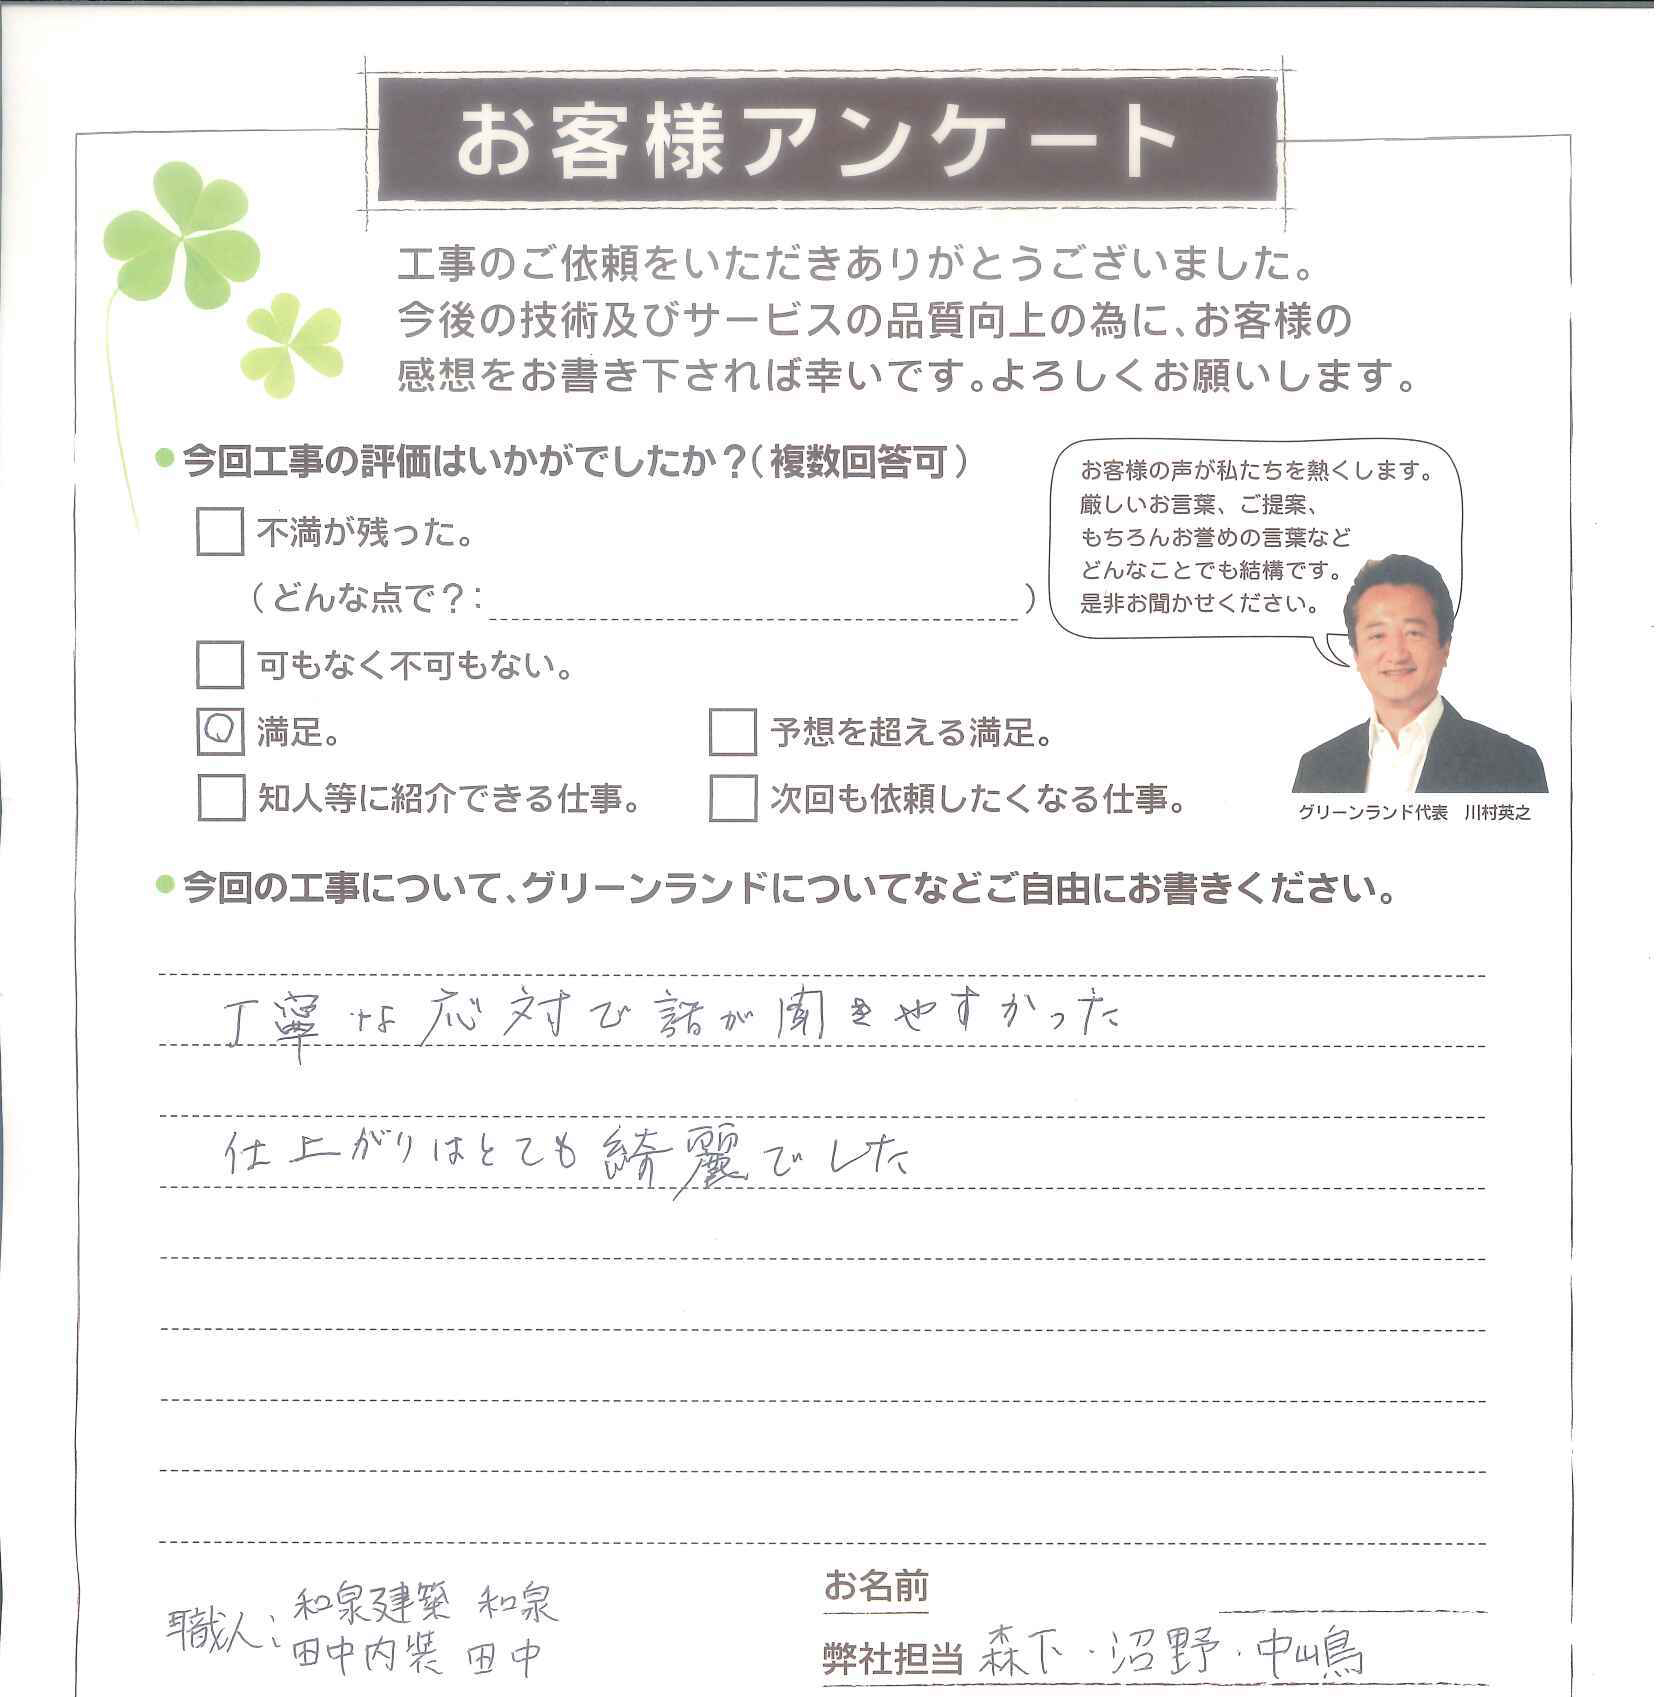 お客様アンケート
工事のご依頼をいただきありがとうございました。
今後の技術及びサービスの品質向上の為に、お客様の
感想をお書き下されば幸いです。よろしくお願いします。
今回工事の評価はいかがでしたか?(複数回答可)
不満が残った。
(どんな点で?: )
可もなく不可もない。
〇 満足。
予想を超える満足。
知人等に紹介できる仕事。
次回も依頼したくなる仕事。
お客様の声が私たちを熱くします。
厳しいお言葉、ご提案、
もちろんお誉めの言葉など
どんなことでも結構です。
是非お聞かせください。
グリーンランド代表 川村英之
今回の工事について、グリーンランドについてなどご自由にお書きください。
丁寧な応対で話が聞きやすかった
仕上がりはとても綺麗でした
職人: 和泉建築 和泉
田中内装 田中
お名前
弊社担当 森下・沼野・中嶋